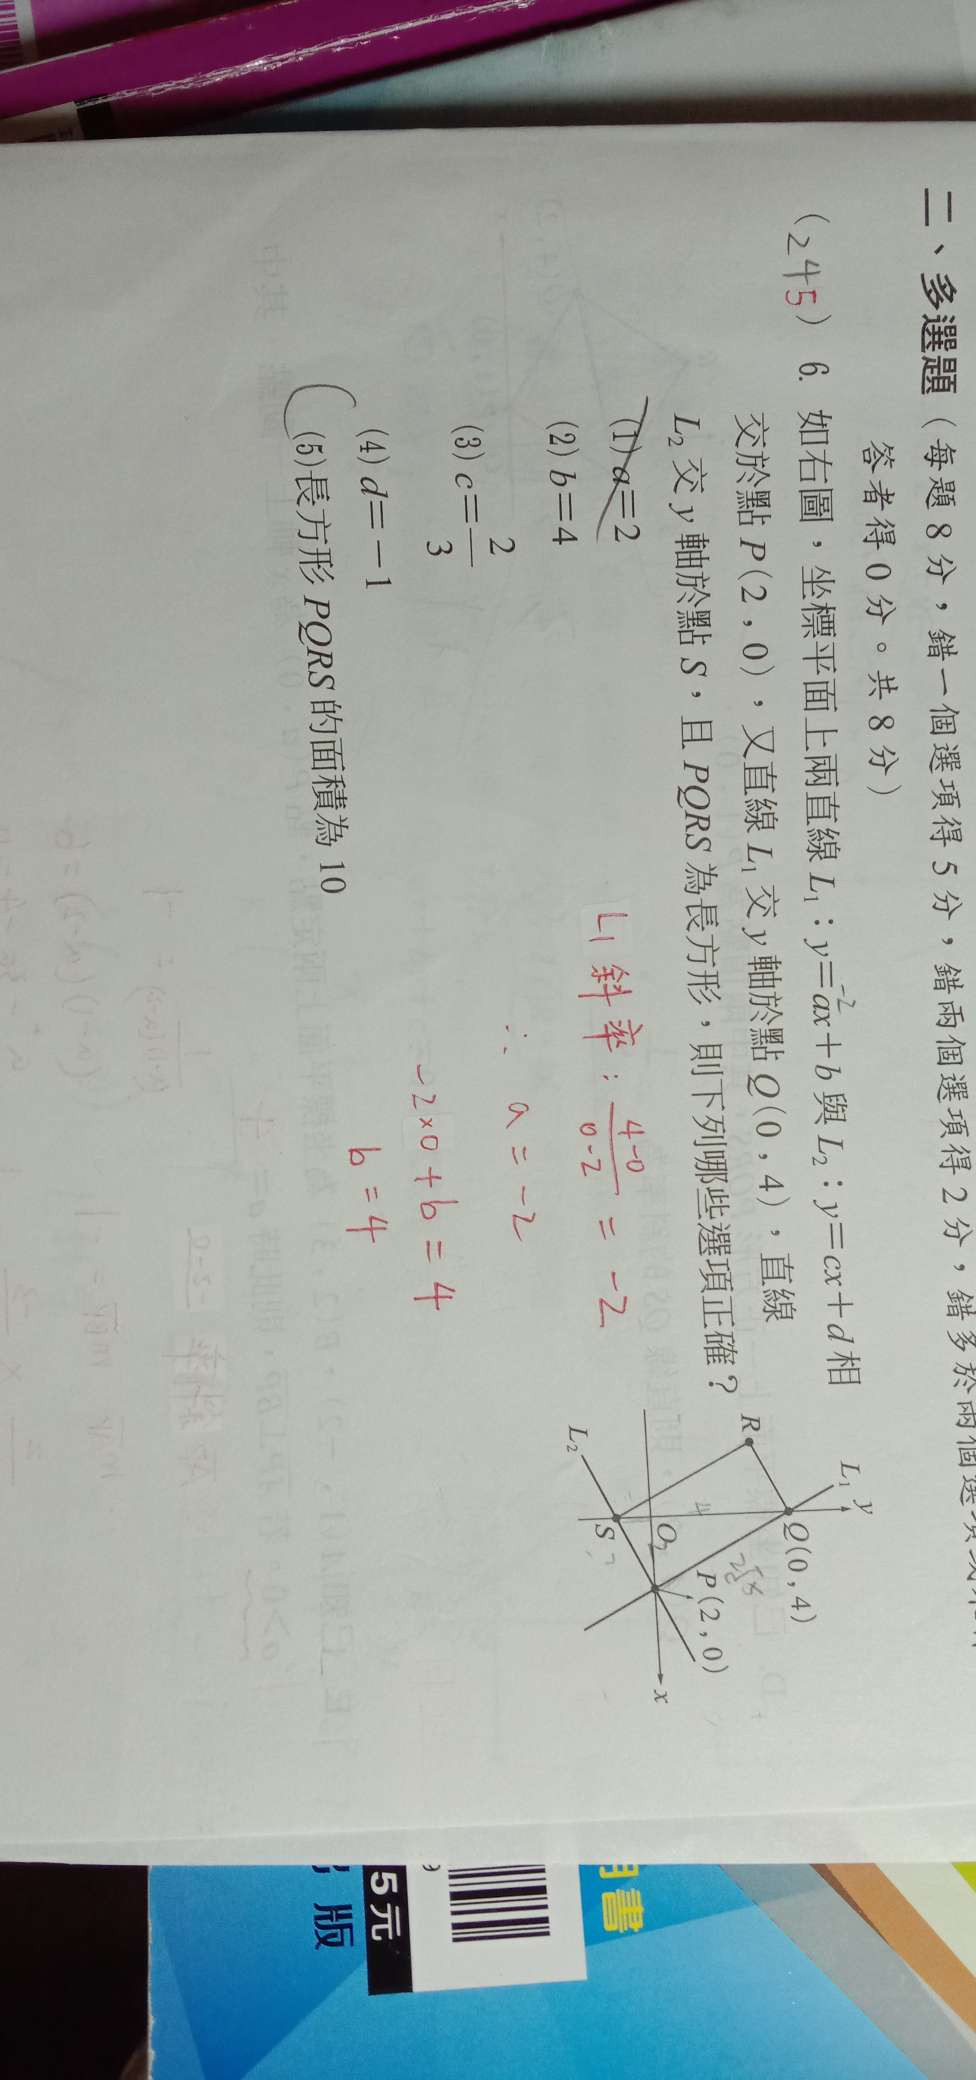 二、多選題（每題8分，錯一個選項得5分，錯兩個選項得2分，錯多於兩個選項
答者得0分。共8分）
（245）6. 如右圖，坐標平面上兩直線 L₁：y=ax+b 與 L₂：y=cx+d 相
-2
交於點 P(2,0)，又直線 L₁ 交 y 軸於點 Q(0,4)，直線
L₂ 交 y 軸於點 S，且 PQRS 為長方形，則下列哪些選項正確？
(1) a=2
(2) b=4
(3) c=2/3
(4) d=-1
(5)長方形 PQRS 的面積為 10
L₁ 斜率：4-0/0-2 = -2
∴ a = -2
-2×0+b=4
b=4
L₁
y
Q(0,4)
R
4
2√5
P(2,0)
O
2
x
S
L₂
用書
5元
出版